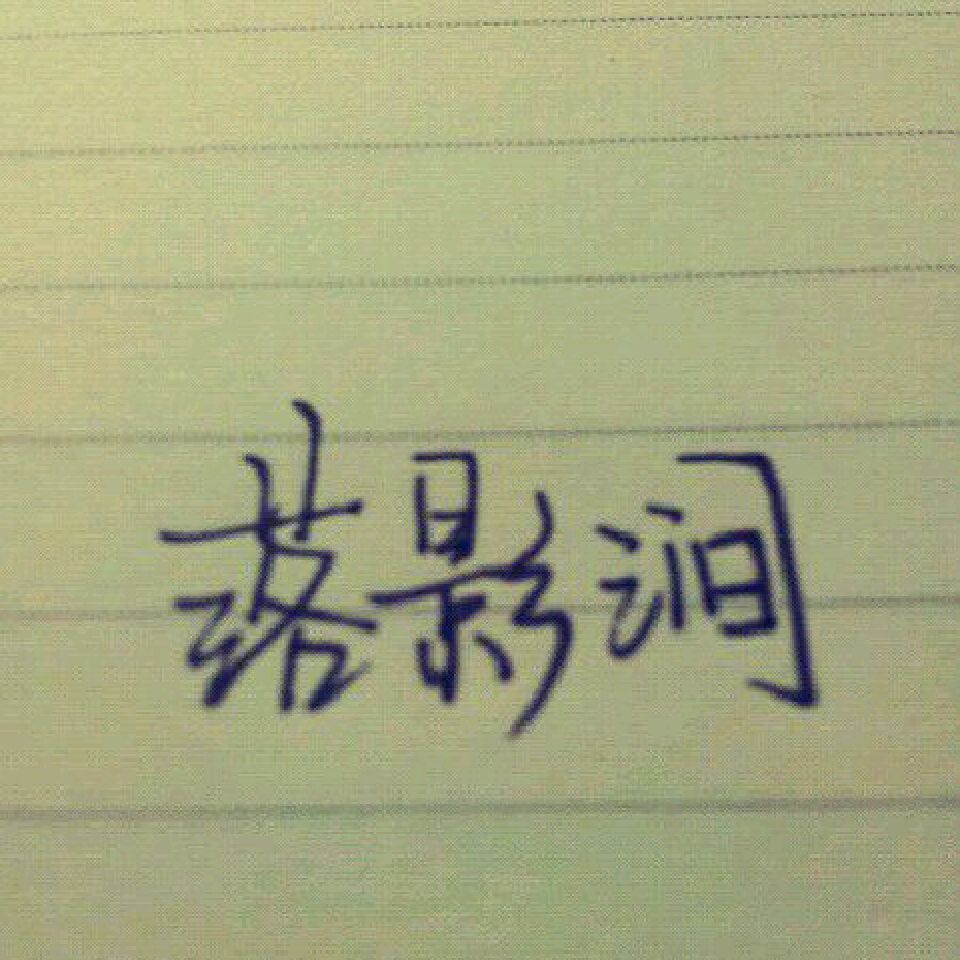 落影涧